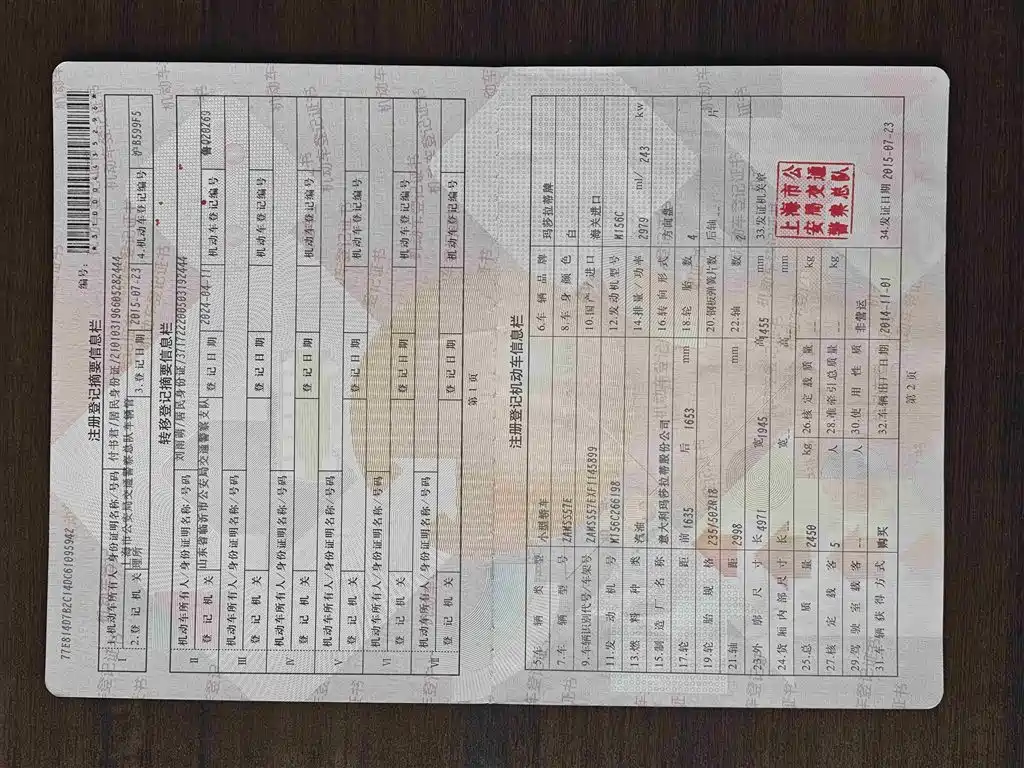 77E814D7B2C14DC61095942
编号:
注册登记摘要信息栏
I
1.机动车所有人/身份证明名称/号码 付书君/居民身份证/210103196605282444
2.登记机关 上海市公安局交通警察总队车辆管理所 3.登记日期 2015-07-23 4.机动车登记编号 沪B599F5
转移登记摘要信息栏
II
机动车所有人/身份证明名称/号码 刘雨萌/居民身份证/371722200503192444
登记机关 山东省临沂市公安局交通警察支队 登记日期 2024-04-11 机动车登记编号 鲁Q20269
III
机动车所有人/身份证明名称/号码
登记机关 登记日期 机动车登记编号
IV
机动车所有人/身份证明名称/号码
登记机关 登记日期 机动车登记编号
V
机动车所有人/身份证明名称/号码
登记机关 登记日期 机动车登记编号
VI
机动车所有人/身份证明名称/号码
登记机关 登记日期 机动车登记编号
VII
机动车所有人/身份证明名称/号码
登记机关 登记日期 机动车登记编号
第 1 页
注册登记机动车信息栏
5.车辆类型 小型轿车 6.车辆品牌 玛莎拉蒂牌
7.车辆型号 ZAMSS57E 8.车身颜色 白
9.车辆识别代号/车架号 ZAMSS57EXF1145899 10.国产/进口 海关进口
11.发动机号 M156C266198 12.发动机型号 M156C
13.燃料种类 汽油 14.排量/功率 2979 ml/ 243 kw
15.制造厂名称 意大利玛莎拉蒂股份公司 16.转向形式 方向盘
17.轮距 前 1635 后 1653 mm 18.轮胎数 4
19.轮胎规格 235/50ZR18 20.钢板弹簧片数 后轴 -- 片
21.轴距 2998 mm 22.轴数 2
23.外廓尺寸 长 4971 宽 1945 高 1455 mm 33.发证机关章
24.货厢内部尺寸 长 宽 高 mm
上海市公安局交通警察总队
25.总质量 2450 kg 26.核定载质量 -- kg
27.核定载客 5 人 28.准牵引总质量 -- kg
29.驾驶室载客 -- 人 30.使用性质 非营运
31.车辆获得方式 购买 32.车辆出厂日期 2014-11-01 34.发证日期 2015-07-23
第 2 页